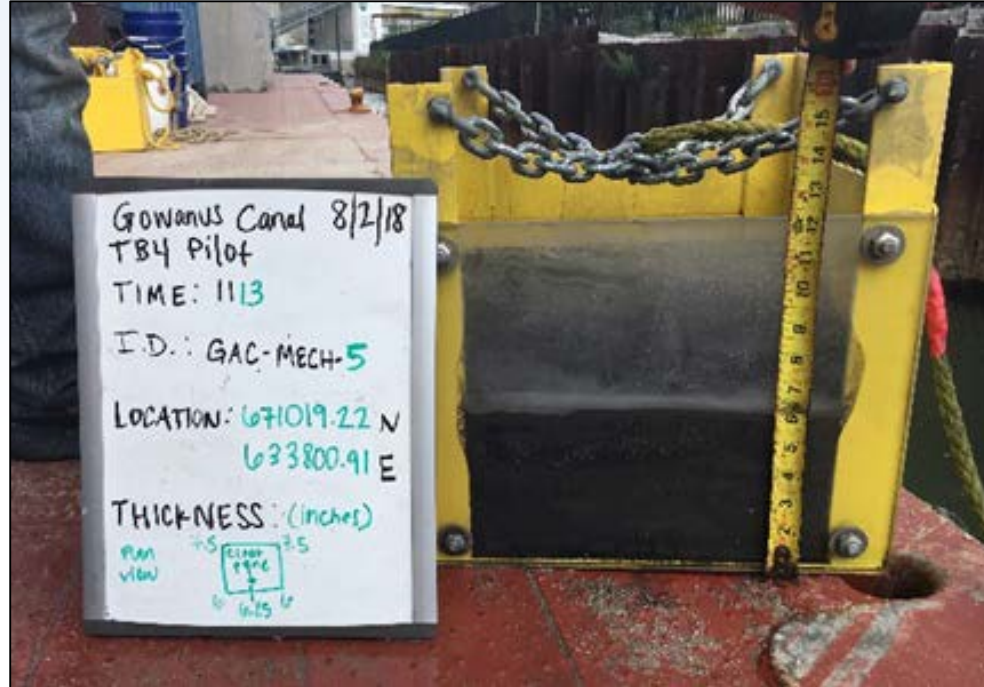 Gowanus Canal 8/2/18
TB4 Pilot
TIME: 1113
I.D.: GAC-MECH-5
LOCATION: 671019.22 N
633800.91 E
THICKNESS: (inches)
7.5 7.5
Plan view
clear
6 6.25 6
15
14
13
12
11
10
9
8
7
6
5
4
3
2